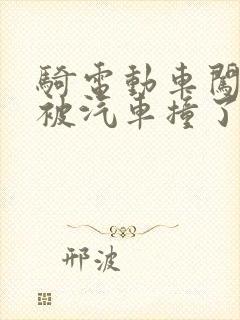 騎電動車闖
被汽車撞了
邢波